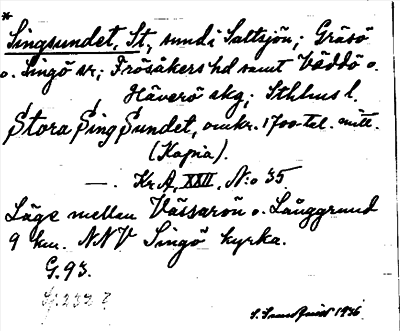 *
Singsundet, St., sund i Saltsjön; Gräsö
o. Singö sr; Frösåkers hd samt Väddö o.
Häverö skg; Sthlms l.
Stora Sing Sundet, omkr. 1700-tal. mitt.
(Kopia).
—. Kr A, XXII, N:o 35
Läge mellan Vässarön o. Långgrund
9 km. NNV Singö kyrka.
G. 93.
1936